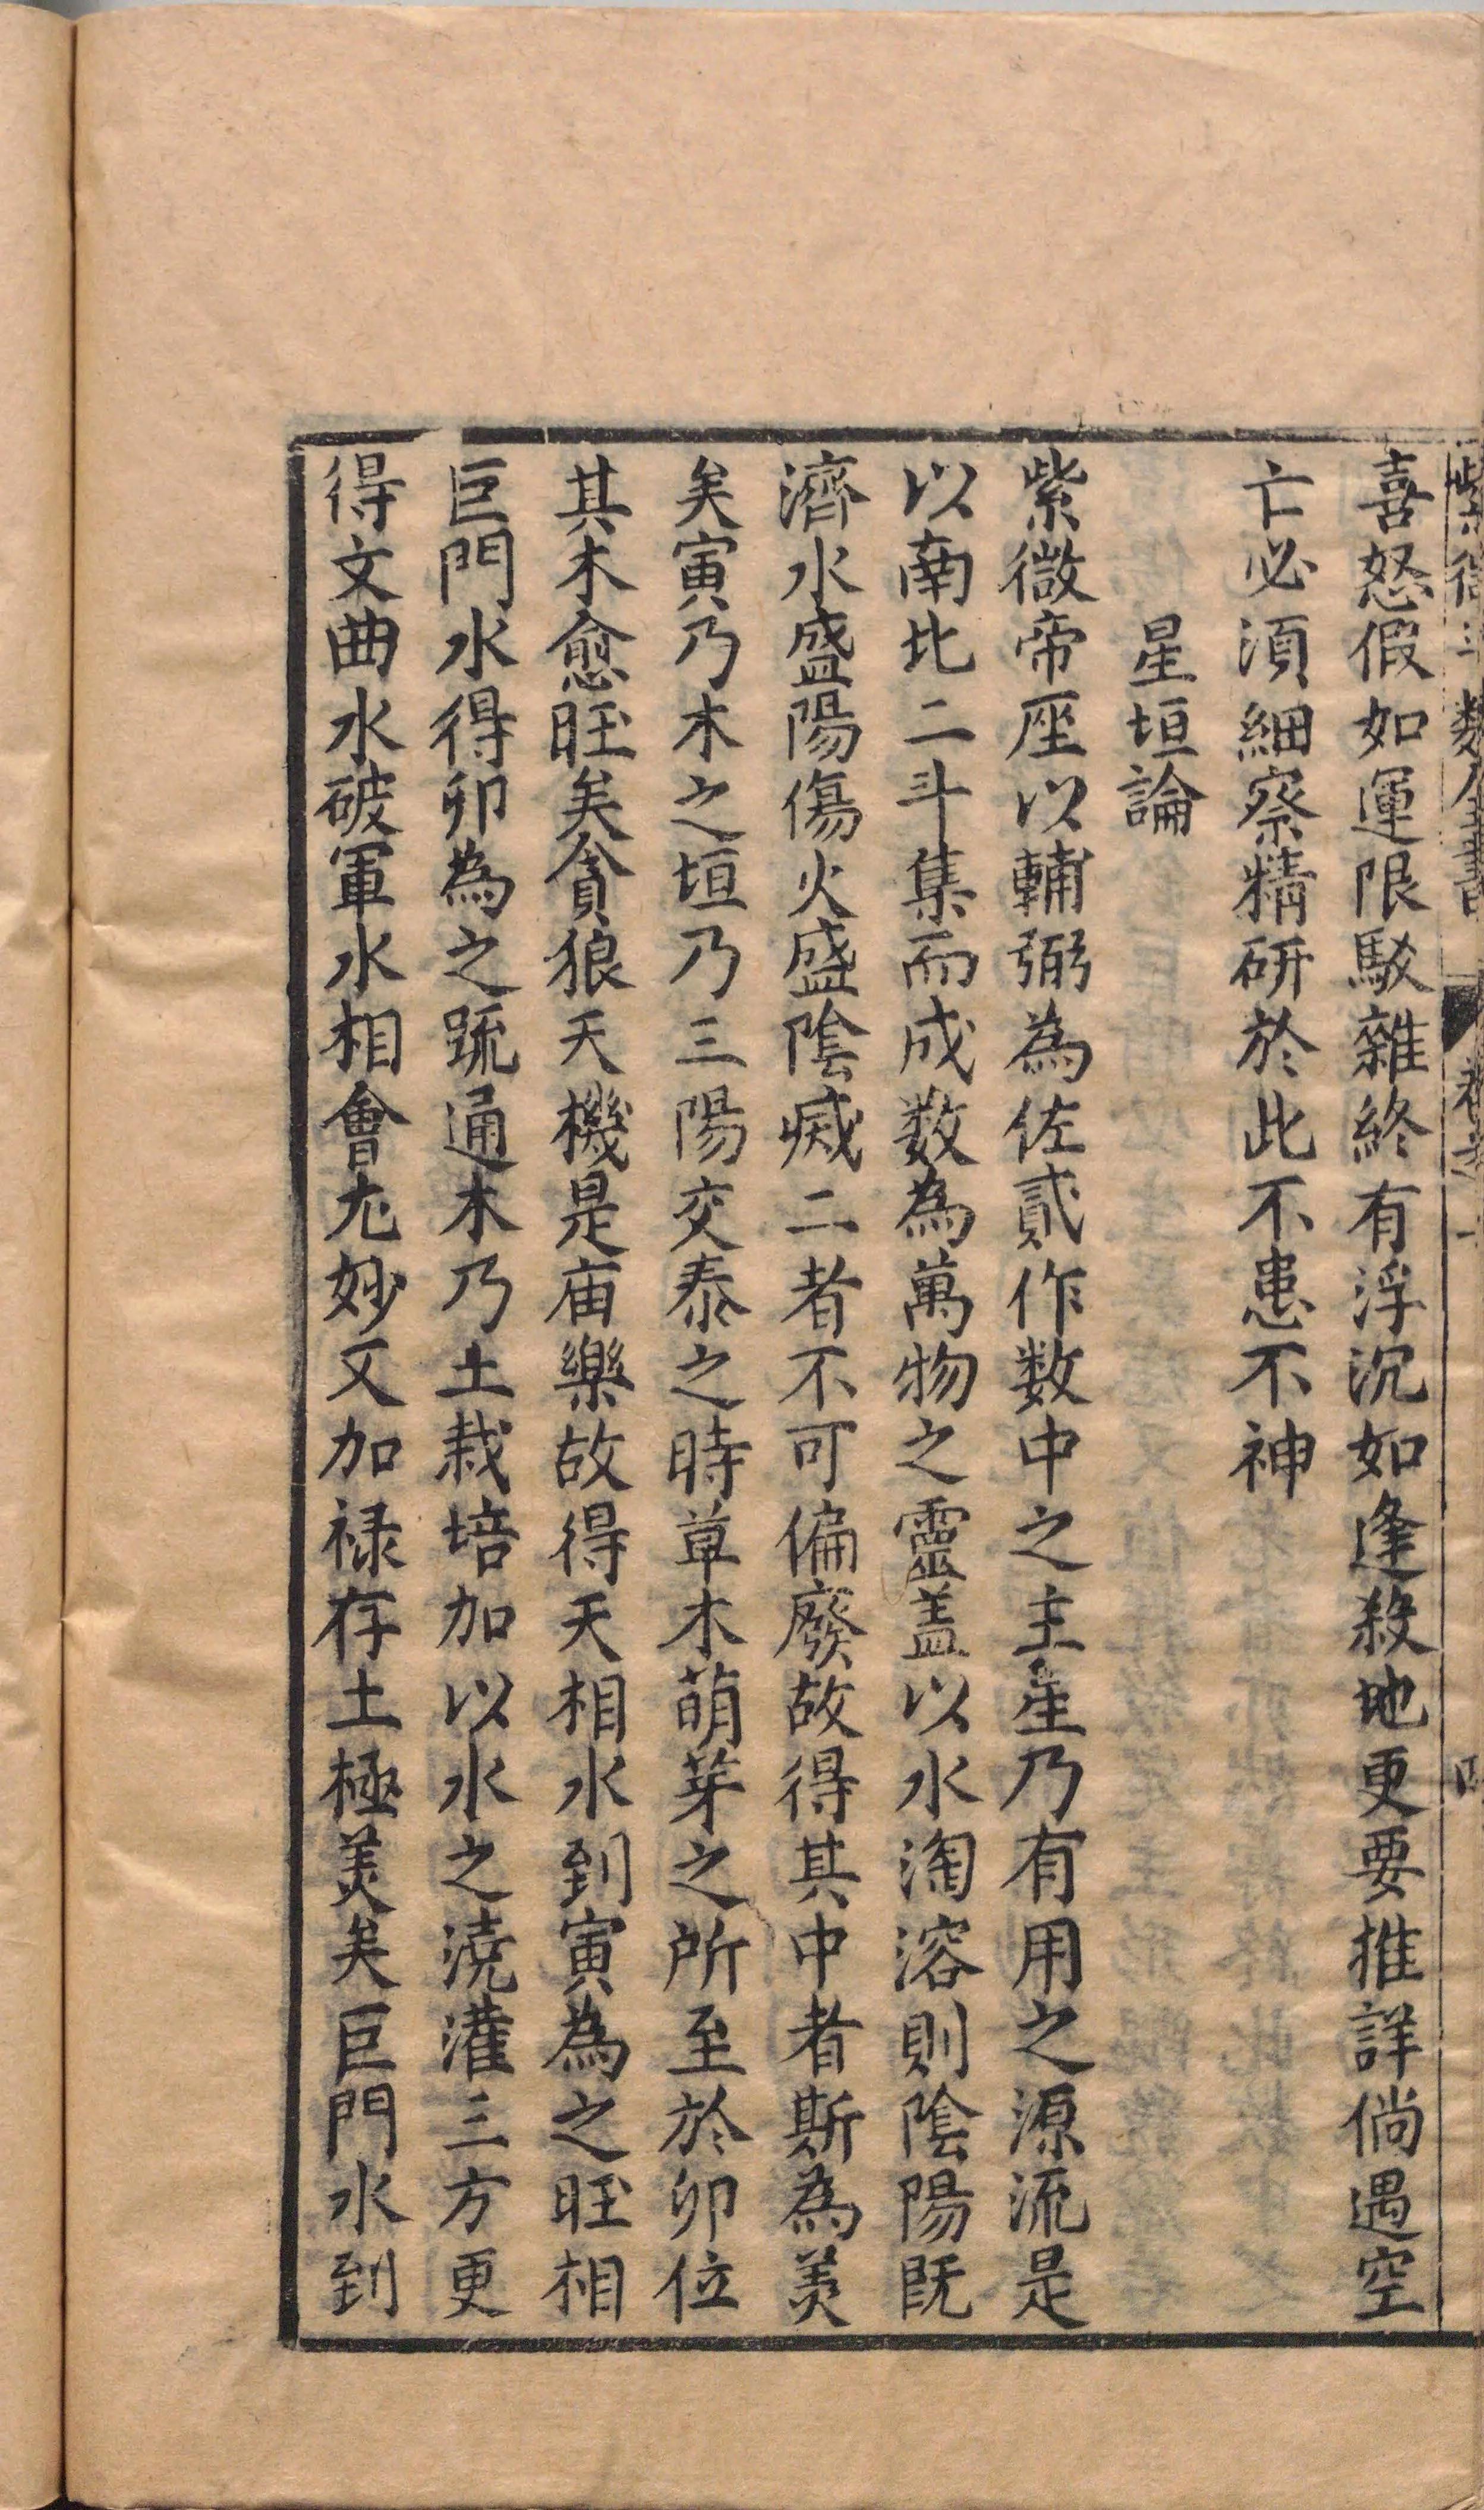 紫微斗数全書 卷之一 四
喜怒假如運限駁雜終有浮沉如逢殺地更要推詳倘遇空
亡必湏細察精研於此不患不神
星垣論
紫微帝座以輔弼為佐貳作数中之主星乃有用之源流是
以南北二斗集而成数為萬物之靈盖以水淘溶則陰陽既
濟水盛陽傷火盛陰滅二者不可偏廢故得其中者斯為美
矣寅乃木之垣乃三陽交泰之時草木萌芽之所至於卯位
其木愈旺矣貪狼天機是庙樂故得天相水到寅為之旺相
巨門水得卯為之䟽通木乃土栽培加以水之澆灌三方更
得文曲水破軍水相會尤妙又加禄存土極美矣巨門水到